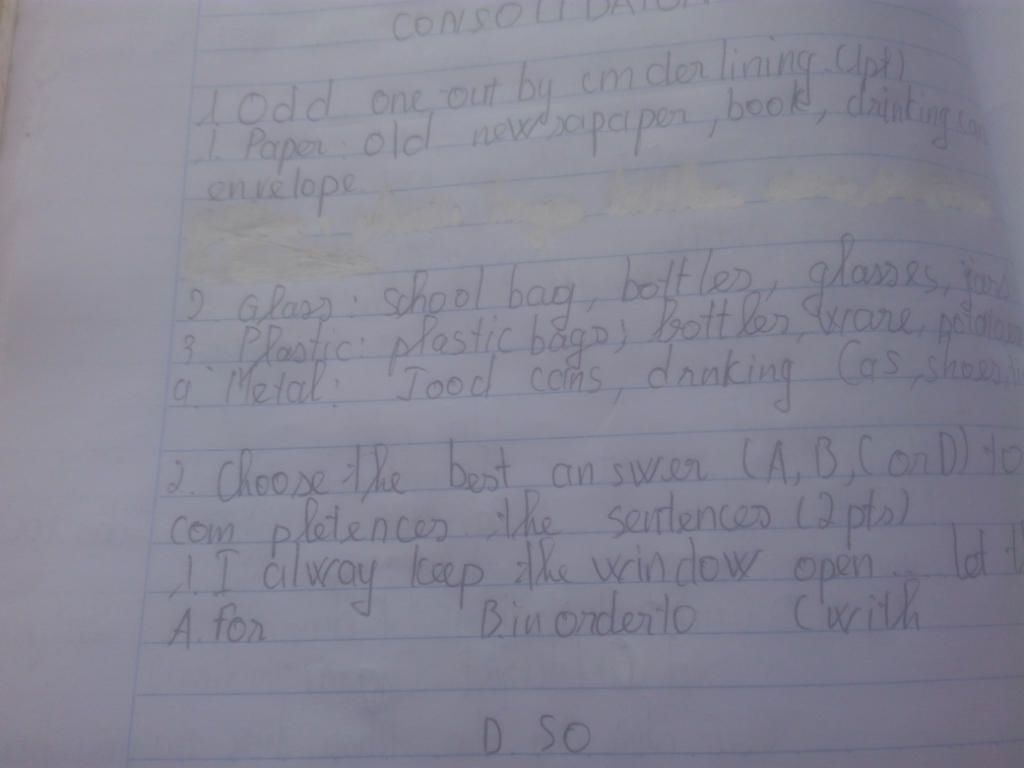 CONSOLIDATION
1 Odd one out by cmderlining (1pt)
1. Paper: old newsapaper, book, drinking can
envelope
2 Glass: school bag, bottles, glasses, jars
3 Plastic: plastic bags; bottles, ware,
9. Metal: Jood cans, drnking Cas, shoes,
2. Choose the best answer (A, B, C or D) to
com pletences the sentences (2pts)
.1 I alway keep the window open... let
A. for B. in order to C with
D. SO